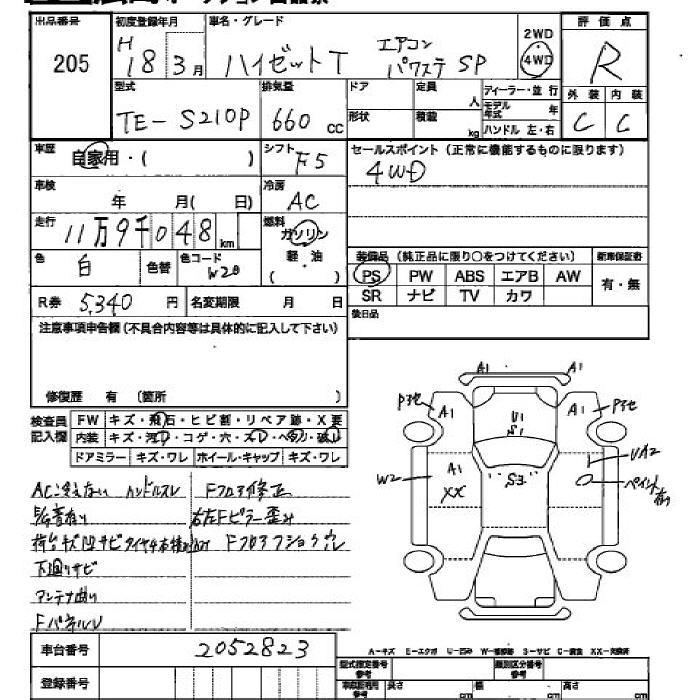 出品番号 初度登録年月 車名・グレード 評価点
205 H18 3月 ハイゼットT エアコン パワステ SP 2WD 4WD R
型式 排気量 ドア 定員 人 ディーラー・並行 外装 内装
TE-S210P 660cc 形状 積載 kg モデル年式 年 C C
ハンドル 左・右
車歴 自家用・( ) シフト F5 セールスポイント(正常に機能するものに限ります)
4WD
車検 年 月( 日) 冷房 AC
走行 11万9千048km 燃料 ガソリン
軽油
( )
色 白 色替 色コード W20
装備品(純正品に限り○をつけてください) 新車保証書
PS PW ABS エアB AW 有・無
SR ナビ TV カワ
R券 5,340円 名変期限 月 日 後日品
注意事項申告欄(不具合内容等は具体的に記入して下さい)
修復歴 有(箇所 )
検査員記入欄 FW キズ・飛石・ヒビ割・リペア跡・X要
内装 キズ・汚れ・コゲ・穴・スレ・ヘタリ・破レ
ドアミラー キズ・ワレ ホイール・キャップ キズ・ワレ
AC冷えない ハンドルスレ Fフロア修正
右左Fピラー歪み
下廻りサビ
アンテナ曲り
FパネルU
A1 A1
P3セ A1 U1 S1 A1 P3セ
W2 A1 XX "S3" UA2
ペイント有り
車台番号 2052823
登録番号
A-キズ E-エクボ U-凹み W-補修跡 S-サビ C-腐食 XX-交換済
型式指定番号 参考 類別区分番号 参考
長さ cm 幅 cm 高さ cm